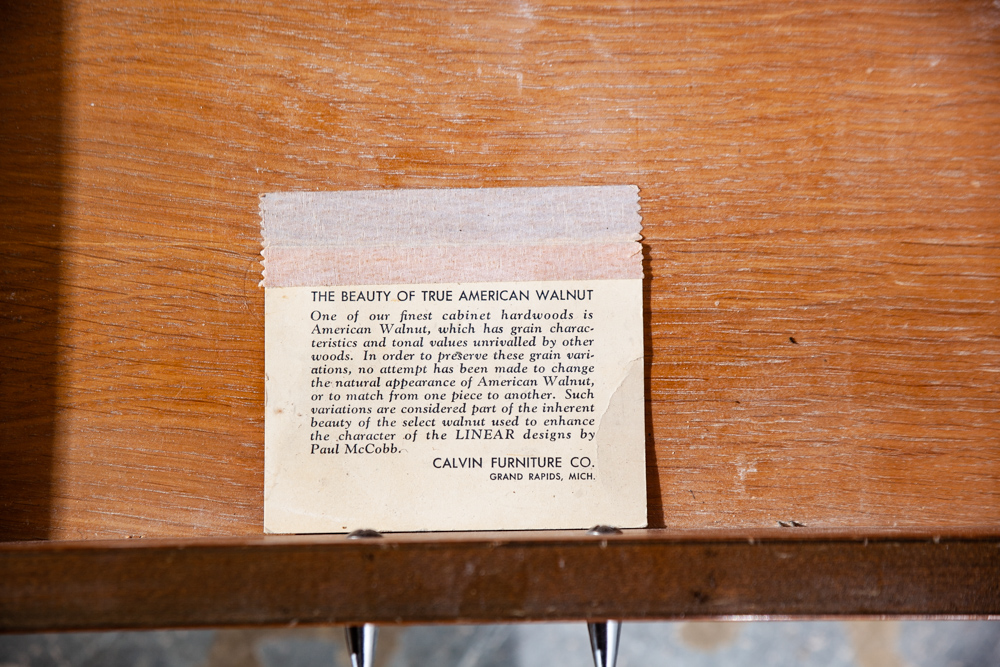 THE BEAUTY OF TRUE AMERICAN WALNUT
One of our finest cabinet hardwoods is
American Walnut, which has grain charac-
teristics and tonal values unrivalled by other
woods. In order to preserve these grain vari-
ations, no attempt has been made to change
the natural appearance of American Walnut,
or to match from one piece to another. Such
variations are considered part of the inherent
beauty of the select walnut used to enhance
the character of the LINEAR designs by
Paul McCobb.
CALVIN FURNITURE CO.
GRAND RAPIDS, MICH.